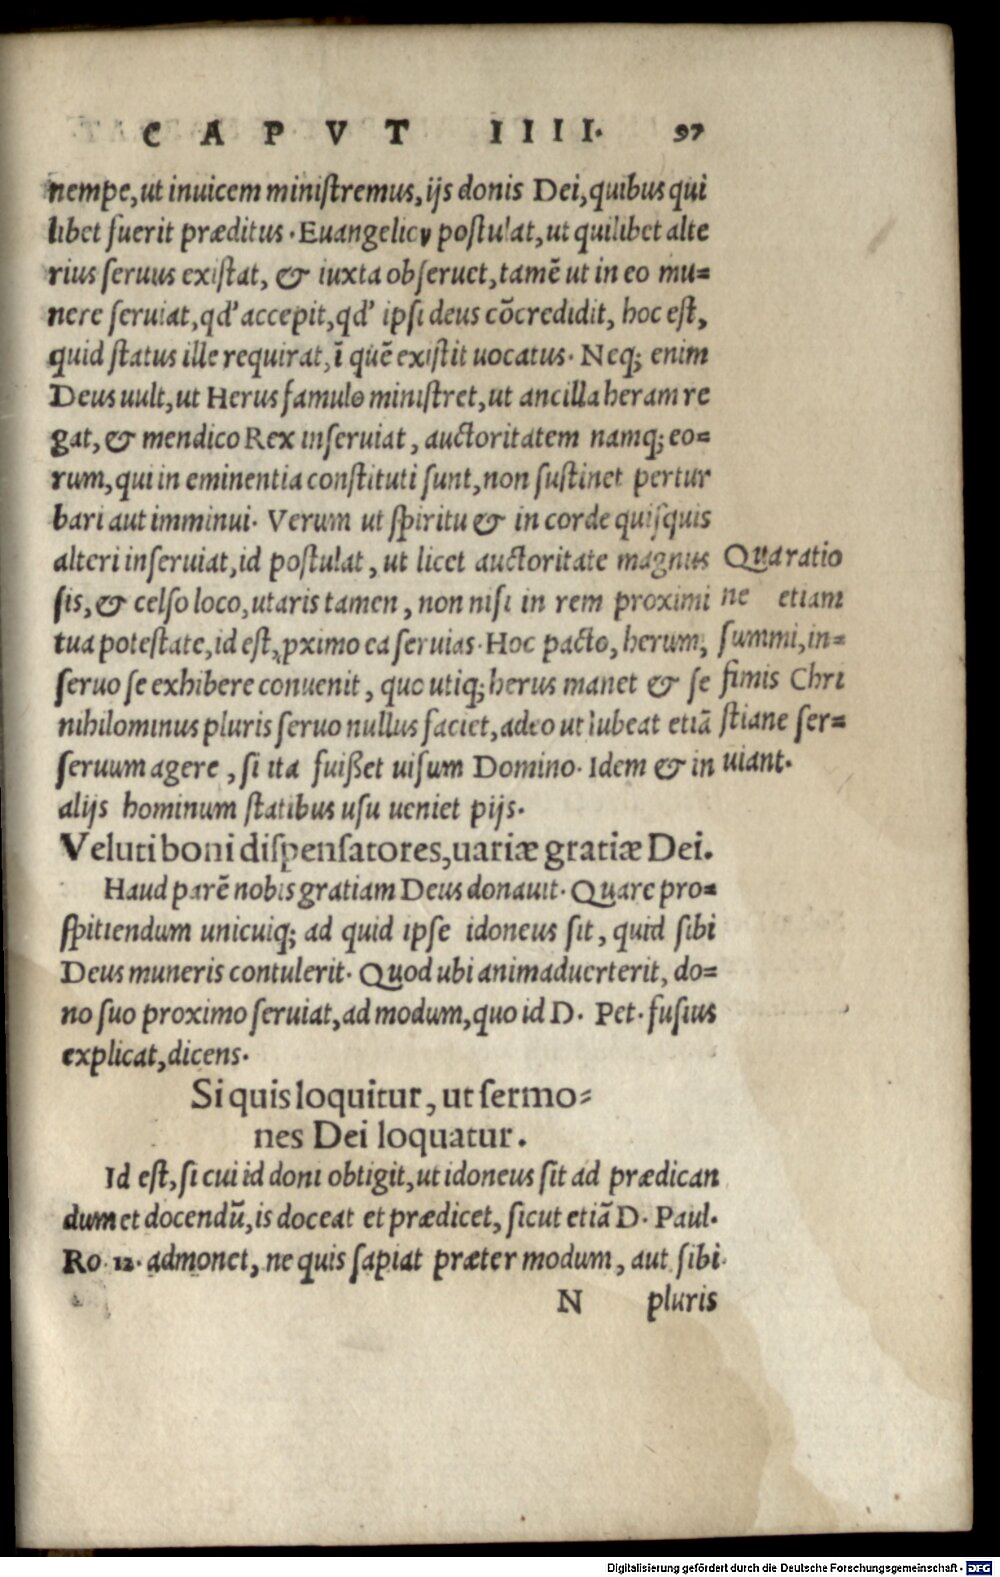 CAPVT IIII. 97
nempe, ut inuicem ministremus, ijs donis Dei, quibus qui
libet fuerit præditus. Euangelicū postulat, ut quilibet alte
rius seruus existat, & iuxta obseruet, tamē ut in eo mu=
nere seruiat, qd' accepit, qd' ipsi deus cōcredidit, hoc est,
quid status ille requirat, ī quē existit uocatus. Neq; enim
Deus uult, ut Herus famulo ministret, ut ancilla heram re
gat, & mendico Rex inseruiat, auctoritatem namq; eo=
rum, qui in eminentia constituti sunt, non sustinet pertur
bari aut imminui. Verum ut spiritu & in corde quisquis
alteri inseruiat, id postulat, ut licet auctoritate magnus
sis, & celso loco, utaris tamen, non nisi in rem proximi
tua potestate, id est, ꝓximo ea seruias. Hoc pacto, herum,
seruo se exhibere conuenit, quo utiq; herus manet & se
nihilominus pluris seruo nullus faciet, adeo ut lubeat etiā
seruum agere, si ita fuißet uisum Domino. Idem & in
alijs hominum statibus usu ueniet pijs.
Qua ratio
ne etiam
summi, in=
fimis Chri
stiane ser=
uiant.
Veluti boni dispensatores, uariæ gratiæ Dei.
Haud parē nobis gratiam Deus donauit. Quare pro=
spitiendum unicuiq; ad quid ipse idoneus sit, quid sibi
Deus muneris contulerit. Quod ubi animaduerterit, do=
no suo proximo seruiat, ad modum, quo id D. Pet. fusius
explicat, dicens.
Si quis loquitur, ut sermo=
nes Dei loquatur.
Id est, si cui id doni obtigit, ut idoneus sit ad prædican
dum et docendū, is doceat et prædicet, sicut etiā D. Paul.
Ro. 12. admonet, ne quis sapiat præter modum, aut sibi
N pluris
Digitalisierung gefördert durch die Deutsche Forschungsgemeinschaft - DFG